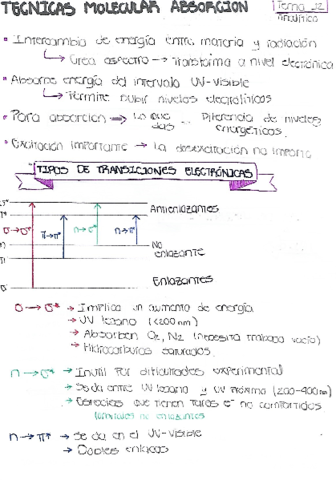 TÉCNICAS MOLECULAR ABSORCIÓN
Tema 12
Analítica
• Intercambio de energía entre materia y radiación
↳ Crea espectro → Transforma a nivel electrónica
• Absorbe energía del intervalo UV-visible
↳ Permite subir niveles
• Para absorción → Lo que das = Diferencia de niveles
energéticos.
• Excitación importante → La desexcitación no importa
TIPOS DE TRANSICIONES ELECTRÓNICAS
σ*
π*
n
π
σ
σ→σ*
π→π*
n→σ*
n→π*
Antienlazantes
No
enlazante
Enlazantes
σ → σ* → Implica un aumento de energía
→ UV lejano (<200nm)
→ Absorben O₂, N₂ (necesita trabajo vacío)
→ Hidrocarburos saturados.
n → σ* → Inútil por dificultades experimental
→ Se da entre UV lejano y UV próxima (200-400nm)
→ Especies que tienen pares e⁻ no compartidos
n → π* → Se da en el UV-visible
→ Dobles enlaces